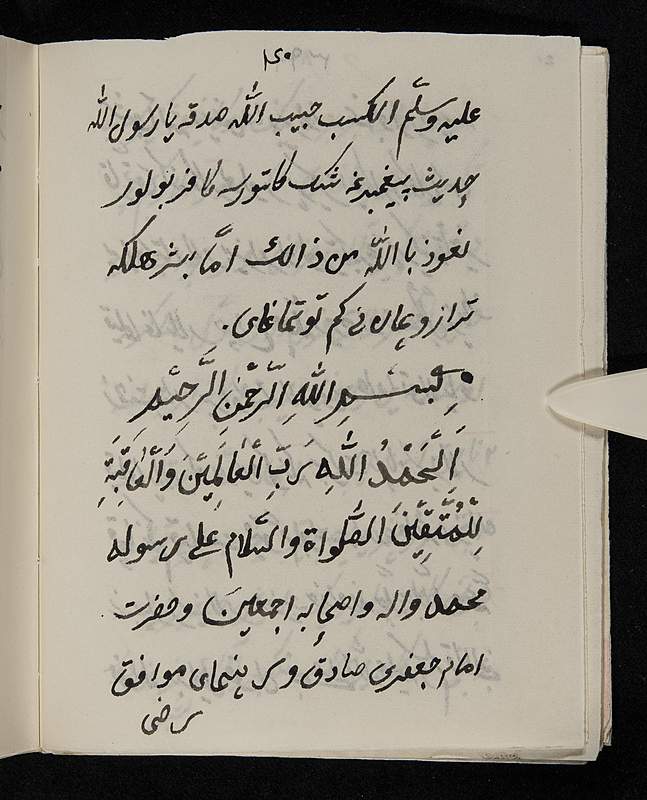 علیه وسلّم الکسب حبیب اللّٰه صدقه یا رسول اللّٰه
حدیث پیغمبرغه شک کلتورسه کافر بولور
نعوذ باللّٰه من ذالک امّا
ترازو
بِسْــمِ اللهِ الرَّحْمٰنِ الرَّحِیْمِ
اَلْحَمْدُ اللّٰهِ رَبِّ الْعَالَمِیْنَ وَالْعَاقِبَةِ
لِلْمُتَّقِیْنَ الصَّلواة والسَّلام علی رسوله
محمد واله واصحابه اجمعین وحضرت
امام جعفری صادق موافق
رضی